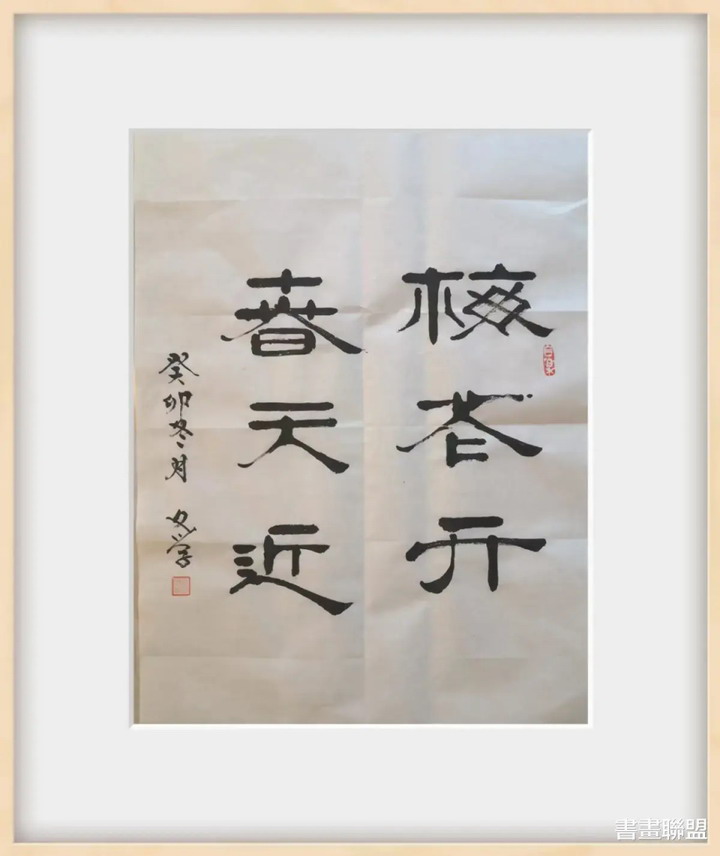 梅花开
春天近
癸卯冬月
文学
書畫聯盟